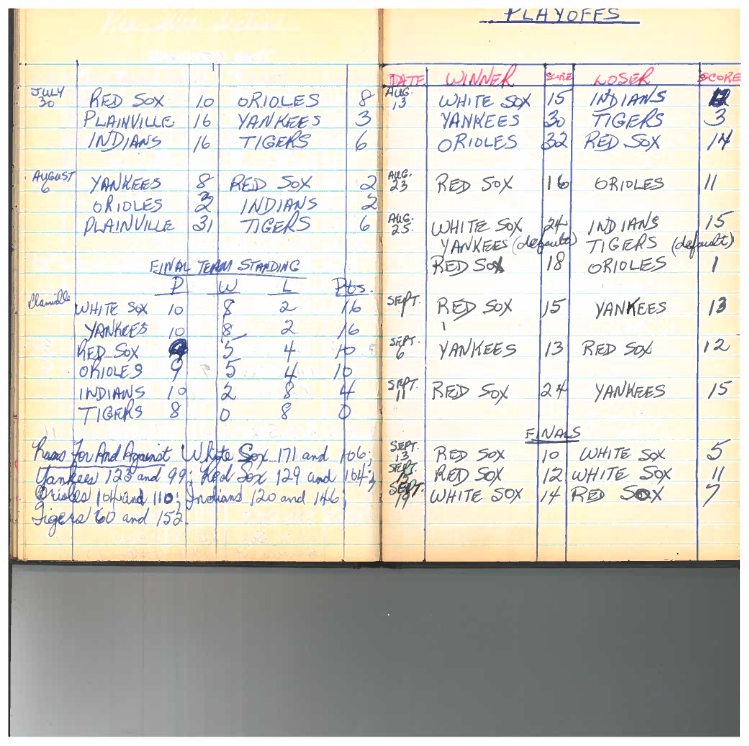 JULY 30 RED SOX 10 ORIOLES 8
PLAINVILLE 16 YANKEES 3
INDIANS 16 TIGERS 6
AUGUST 6 YANKEES 8 RED SOX 2
ORIOLES INDIANS 2
PLAINVILLE 31 TIGERS 6
FINAL TEAM STANDING
P W L Pts.
Plainville WHITE SOX 10 8 2 16
YANKEES 10 8 2 16
RED SOX 9 5 4 10
ORIOLES 9 5 4 10
INDIANS 10 2 8 4
TIGERS 8 0 8 0
Runs For And Against White Sox 171 and 106;
Yankees 123 and 99; Red Sox 129 and 104;
Orioles 104 and 110; Indians 120 and 146;
Tigers 60 and 152.
PLAYOFFS
DATE WINNER SCORE LOSER SCORE
AUG. 13 WHITE SOX 15 INDIANS 12
YANKEES 30 TIGERS 3
ORIOLES 32 RED SOX 14
AUG. 23 RED SOX 16 ORIOLES 11
AUG. 25 WHITE SOX 24 INDIANS 15
YANKEES (default) TIGERS (default)
RED SOX 18 ORIOLES 1
SEPT. 1 RED SOX 15 YANKEES 13
SEPT. 6 YANKEES 13 RED SOX 12
SEPT. 11 RED SOX 24 YANKEES 15
FINALS
SEPT. 13 RED SOX 10 WHITE SOX 5
SEPT. 15 RED SOX 12 WHITE SOX 11
SEPT. 19 WHITE SOX 14 RED SOX 7